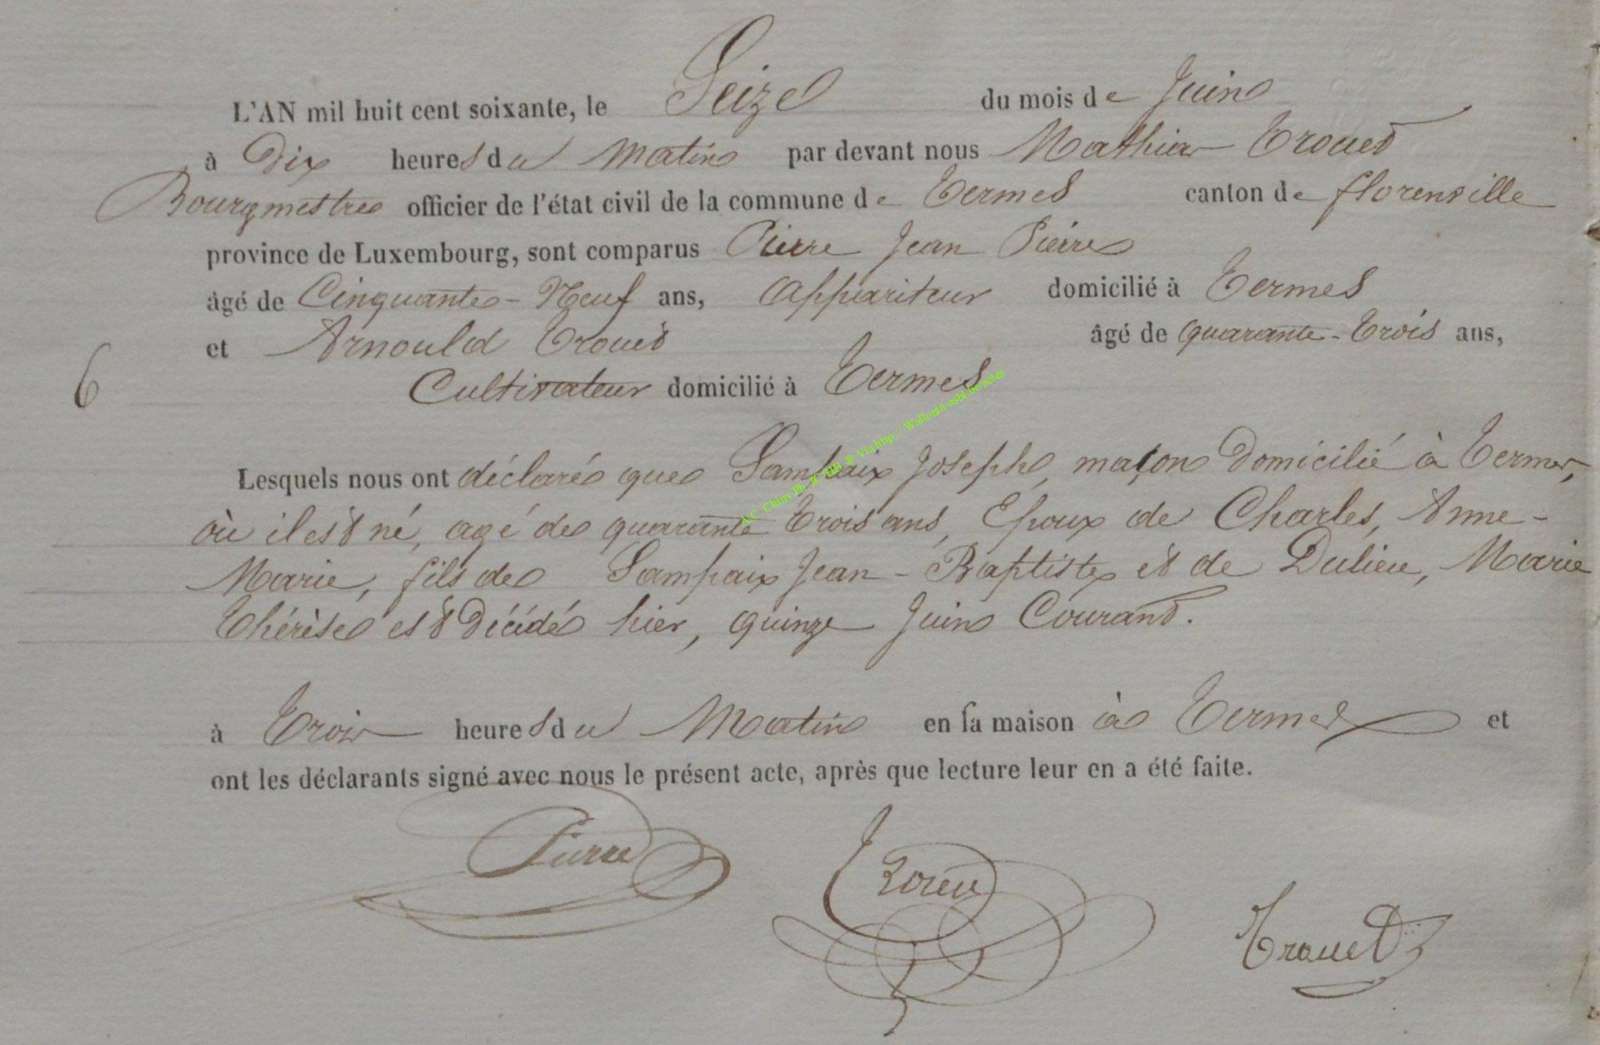 L'AN mil huit cent soixante, le Seize du mois de Juin
à Dix heures du Matin par devant nous Mathieu Trouet
Bourgmestre officier de l'état civil de la commune de Termes canton de florenville
province de Luxembourg, sont comparus Pierre Jean Pierre
âgé de Cinquante-Neuf ans, Appariteur domicilié à Termes
et Arnould Trouet âgé de quarante-trois ans,
6
Cultivateur domicilié à Termes
Lesquels nous ont déclaré que Sampaix Joseph, maçon Domicilié à Termes,
où il est né, agé de quarante trois ans, Epoux de Charles, Anne-
Marie, fils de Sampaix Jean-Baptiste et de Dulieu, Marie
Thérèse est Décédé hier, quinze Juin Courant.
à Trois heures du Matin en sa maison à Termes et
ont les déclarants signé avec nous le présent acte, après que lecture leur en a été faite.
Pierre Trouet Trouet